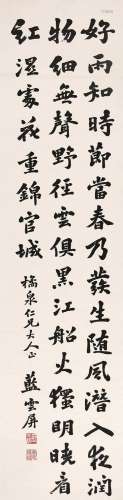 好雨知時節當春乃發生随風潛入夜潤
物細無聲野徑雲俱黑江船火獨明曉看
紅溼處花重錦官城
橘泉仁兄大人正 藍雲屏